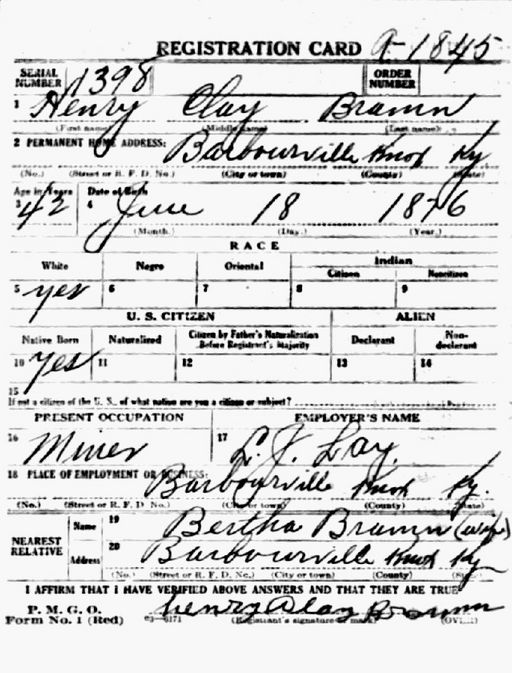 REGISTRATION CARD A-1845
SERIAL NUMBER 1398 ORDER NUMBER
1 Henry Clay Bramn
(First name) (Middle name) (Last name)
2 PERMANENT HOME ADDRESS: Barbourville Knox Ky
(No.) (Street or R. F. D. No.) (City or town) (County) (State)
Age in Years Date of Birth
3 42 4 June 18 1876
(Month.) (Day.) (Year.)
RACE
White Negro Oriental Indian
Citizen Noncitizen
5 yes 6 7 8 9
U. S. CITIZEN ALIEN
Native Born Naturalized Citizen by Father's Naturalization Before Registrant's Majority Declarant Non-declarant
10 Yes 11 12 13 14
15
If not a citizen of the U. S., of what nation are you a citizen or subject?
PRESENT OCCUPATION EMPLOYER'S NAME
16 Miner 17 L. J. Lay.
18 PLACE OF EMPLOYMENT OR BUSINESS:
Barbourville Knox Ky.
(No.) (Street or R. F. D. No.) (City or town) (County) (State)
NEAREST RELATIVE Name 19 Bertha Bramn (wife)
Address 20 Barbourville Knox Ky
(No.) (Street or R. F. D. No.) (City or town) (County) (State)
I AFFIRM THAT I HAVE VERIFIED ABOVE ANSWERS AND THAT THEY ARE TRUE
P. M. G. O. henry Clay
Form No. 1 (Red) 03-6171 (Registrant's signature or mark) (OVER)